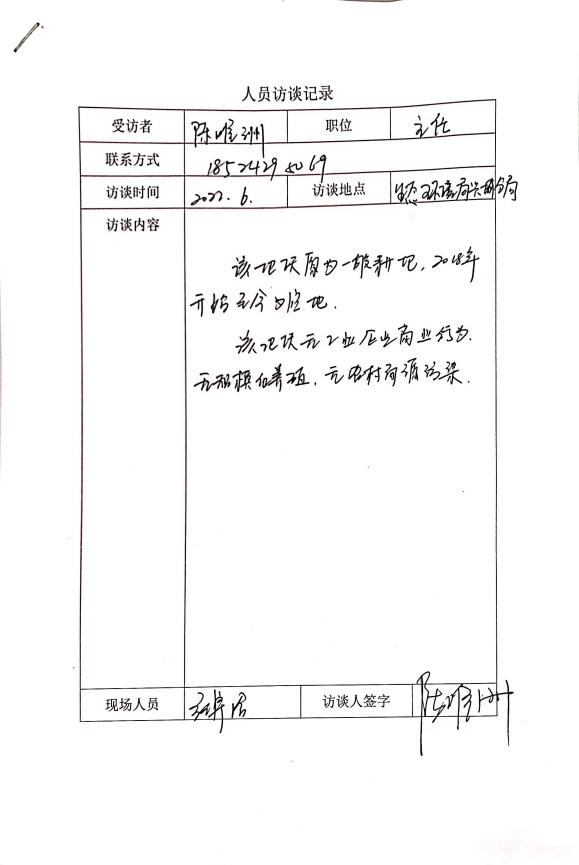 人员访谈记录
受访者 陈唯洲 职位 主任
联系方式 18524295069
访谈时间 2022.6. 访谈地点 生态环境局 分局
访谈内容
该地块原为一般耕地，2018年
开始至今为空地.
该地块无工业企业商业行为.
无规模化养殖，无 污染.
现场人员 访谈人签字 陈唯洲